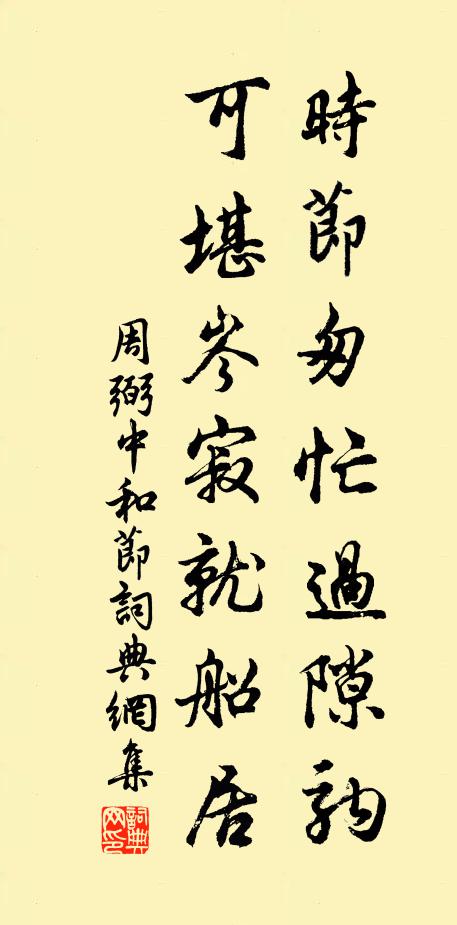 時節匆忙過隙駒
可堪岑寂就船居
周弼中和節詞典網集
詞典网印